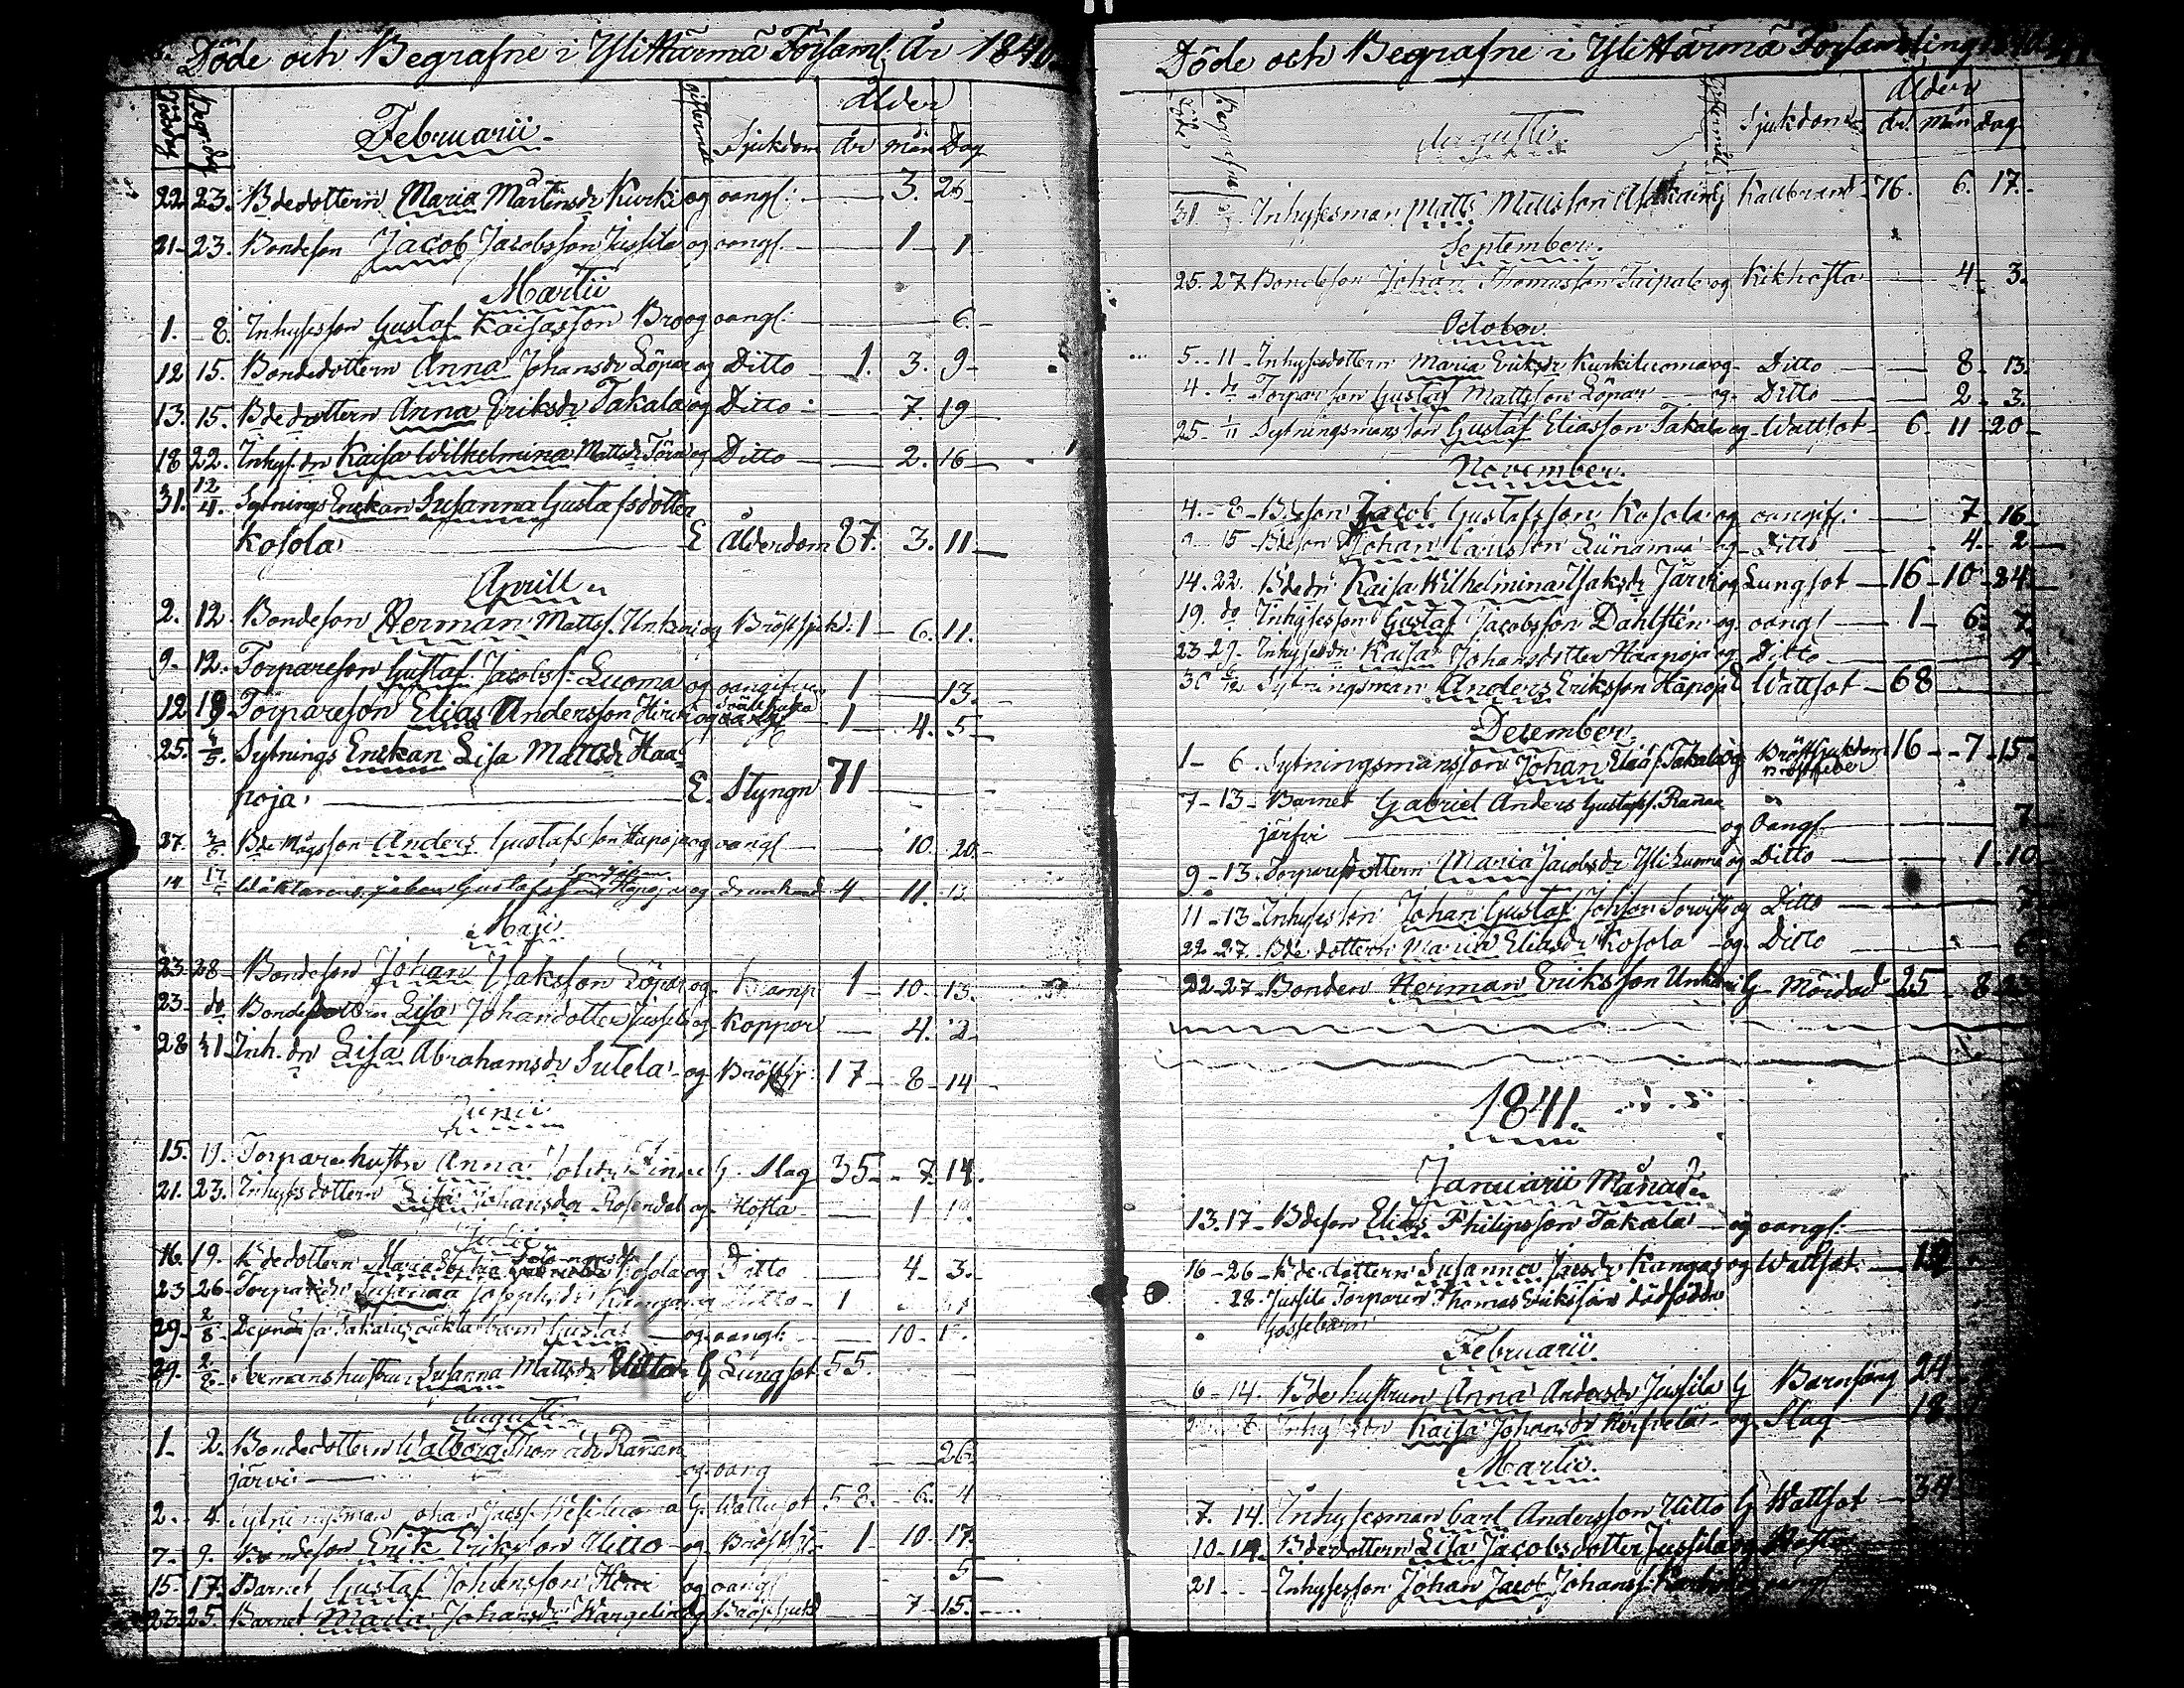 Döde och Begrafne i Ylihärmä Församl. År 1840
Dödsdag Begr. dag Februarii giftermål Sjukdom Ålder År mån Dag
22. 23. Bdedottern Maria Mårtensdr Kurki og oangf: 3. 26
21 23. Bondeson Jacob Jacobsson Jussila og oangf. 1 1.
Martii
1. 8. Inhysesson Gustaf Kaisasson Bro og oangf: 6.
12 15. Bondedottern Anna Johansdr Löpar og Ditto 1. 3. 9
13. 15. Bdedottern Anna Eriksdr Takala og Ditto 7. 19
18 22. Inhys. dr Kaisa Wilhelmina Mattsdr og Ditto 2. 16
31. 12/4. Sytnings Enckan Susanna Gustafsdotter
Kosola E Ålderdom 87. 3. 11
Aprill
2. 12. Bondeson Herman Mattss. Unkuri og Bröstsjukd: 1 6. 11.
9. 12. Torpareson Gustaf Jacobss: Luoma og oangifven 1 13.
12 19 Torpareson Elias Andersson Hirvi og 1 4. 5
25. 4/5. Sytnings Enckan Lisa Mattsdr Haa=
poja E. Styngn 71
27. 3/5 Bde Mågsson Anders Gustafsson Hapoja og oangf 10. 20.
14 17/5 Gustafsson Hapoja og drunknad 4 11. 13
Maji
23 28 Bondeson Johan Isaksson Löpar og Kramp 1 10. 13.
23 do Bondedottern Lisa Johansdotter Jussila og Koppor 4. 2
28 31 Inh. dr Lisa Abrahamsdr Sutela og Bröstsj: 17 8 14
Junii
15. 19. Torparehustr Anna Johsdr Finne G. Slag 35 7. 14.
21. 23. Inhysesdottern Lisa Johansdr Rosendal og Hosta 1
Julii
16. 19. Bdedottern Maria Sophia Salomonsdr Kosola og Ditto 4 3.
23 26 Torparedr Susanna Josephsdr Kangas og Ditto 1
29. 2/8 Lisa Takalas oäkta barn Gustaf og oangf: 10
29. 2/8 hustrun Susanna Mattsdr Uitto G Lungsot 55.
Augusti
1 2. Bondedottern Walborg Thomædr Rannan
järvi og oang 26
2. 4. Sytningsman Johan Jacss. Wesiluoma G. Wattusot 58. 6. 4
7. 9. Bondeson Erik Eriksson Uitto og Bröstsj: 1 10. 17.
15 17. Barnet Gustaf Johansson Hirvi og oangf 5
23. 25. Barnet Maria Johansdr Wangelin og Bröstsjukd 7 15.
Döde och Begrafne i Ylihärmä Församling
Döde Begrafne Augusti Giftermål Sjukdom Ålder år Mån dag
31. Inhysesman Matts Mattsson G Kallbrand 76. 6. 17.
September
25. 27 Bondeson Johan Thomasson Taipale og Kikhosta 4 3.
October
5. 11 Inhysesdottern Maria Eriksdr Kurkiluoma og Ditto 8 13.
4. do Torparson Gustaf Mattsson Löpar og Ditto 2 3.
25 1/11 Sytningsmansson Gustaf Eliasson Takala og Wattsot 6 11 20
November
4. 8 Bdeson Jacob Gustafsson Kosola og oangif: 7 16
15 Bdeson Johan Carlsson Liinamaa og Ditto 4 2
14. 22. Bdedr Kaisa Wilhelmina Isaksdr Järvi og Lungsot 16 10 24
19. do Inhysesson Gustaf Jacobsson Dahlstén og oangf 1 6 7.
23 29. Inhysesdr Kaisa Johansdotter Haapoja og Ditto 4
30 6/12 Sytningsman Anders Eriksson Hapoja E Wattsot 68
December
1 6. Sytningsmansson Johan Eliæss. Takala og Bröstsjukdom 16 7 15
Bröstfeber
7 13 Barnet Gabriel Anders Gustafss. Rannan
järfvi og Oangf 7
9 13. Torparedottern Maria Jacobsdr Yliluoma og Ditto 1 10
11 13 Inhysesson Johan Gustaf Johsson og Ditto 7
22 27. Bde dottern Maria Eliædr Kosola og Ditto 6
22 27 Bonden Herman Eriksson Unkuri G Mördad 25 8
1841.
Januarii Månad
13. 17 Bdeson Elias Philipsson Takala og oangf:
16 26 Bdedottern Susanna Jacsdr Kangas og Wattsot. 19
28. Jussila Torparen Thomas Erikssons dödfödde
Gossebarn
Februarii
6 14. Bdehustrun Anna Andersdr Jussila G Barnsäng 24
Inhysesdr Kaisa Johansdr og Slag 18
Martii
7. 14. Inhysesman Carl Andersson Uitto G Wattsot 34
10 14. Bdedottern Lisa Jacobsdotter Jussila og Hosta
21 Inhysesson Johan Jacob Johanss.